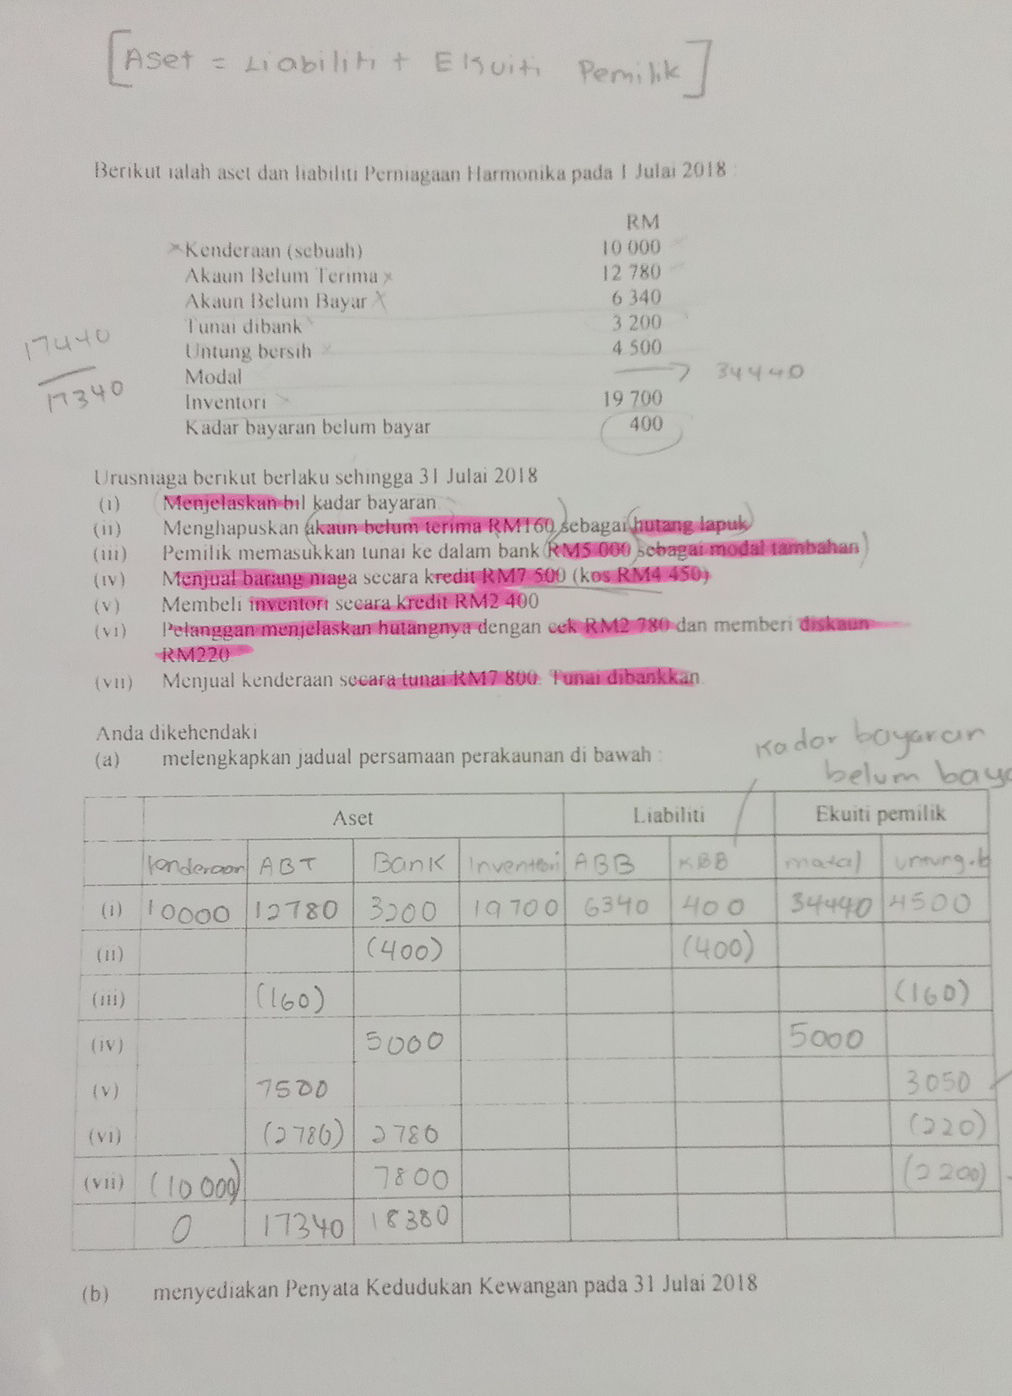 [Aset = Liabiliti + Ekuiti Pemilik]
Berikut ialah aset dan liabiliti Perniagaan Harmonika pada 1 Julai 2018 :
RM
Kenderaan (sebuah) 10 000
Akaun Belum Terima 12 780
Akaun Belum Bayar 6 340
Tunai dibank 3 200
17440
Untung bersih 4 500
17340
Modal → 34440
Inventori 19 700
Kadar bayaran belum bayar 400
Urusniaga berikut berlaku sehingga 31 Julai 2018
(i) Menjelaskan bil kadar bayaran
(ii) Menghapuskan akaun belum terima RM160 sebagai hutang lapuk
(iii) Pemilik memasukkan tunai ke dalam bank RM5 000 sebagai modal tambahan
(iv) Menjual barang niaga secara kredit RM7 500 (kos RM4 450)
(v) Membeli inventori secara kredit RM2 400
(vi) Pelanggan menjelaskan hutangnya dengan cek RM2 780 dan memberi diskaun
RM220
(vii) Menjual kenderaan secara tunai RM7 800. Tunai dibankkan
Anda dikehendaki
(a) melengkapkan jadual persamaan perakaunan di bawah :
Kadar bayaran
belum baya
Aset Liabiliti Ekuiti pemilik
kenderaan ABT Bank Inventori ABB KBB modal untung.b
(i) 10000 12780 3200 19700 6340 400 34440 4500
(ii) (400) (400)
(iii) (160) (160)
(iv) 5000 5000
(v) 7500 3050
(vi) (2780) 2780 (220)
(vii) (10000) 7800 (2200)
0 17340 18380
(b) menyediakan Penyata Kedudukan Kewangan pada 31 Julai 2018